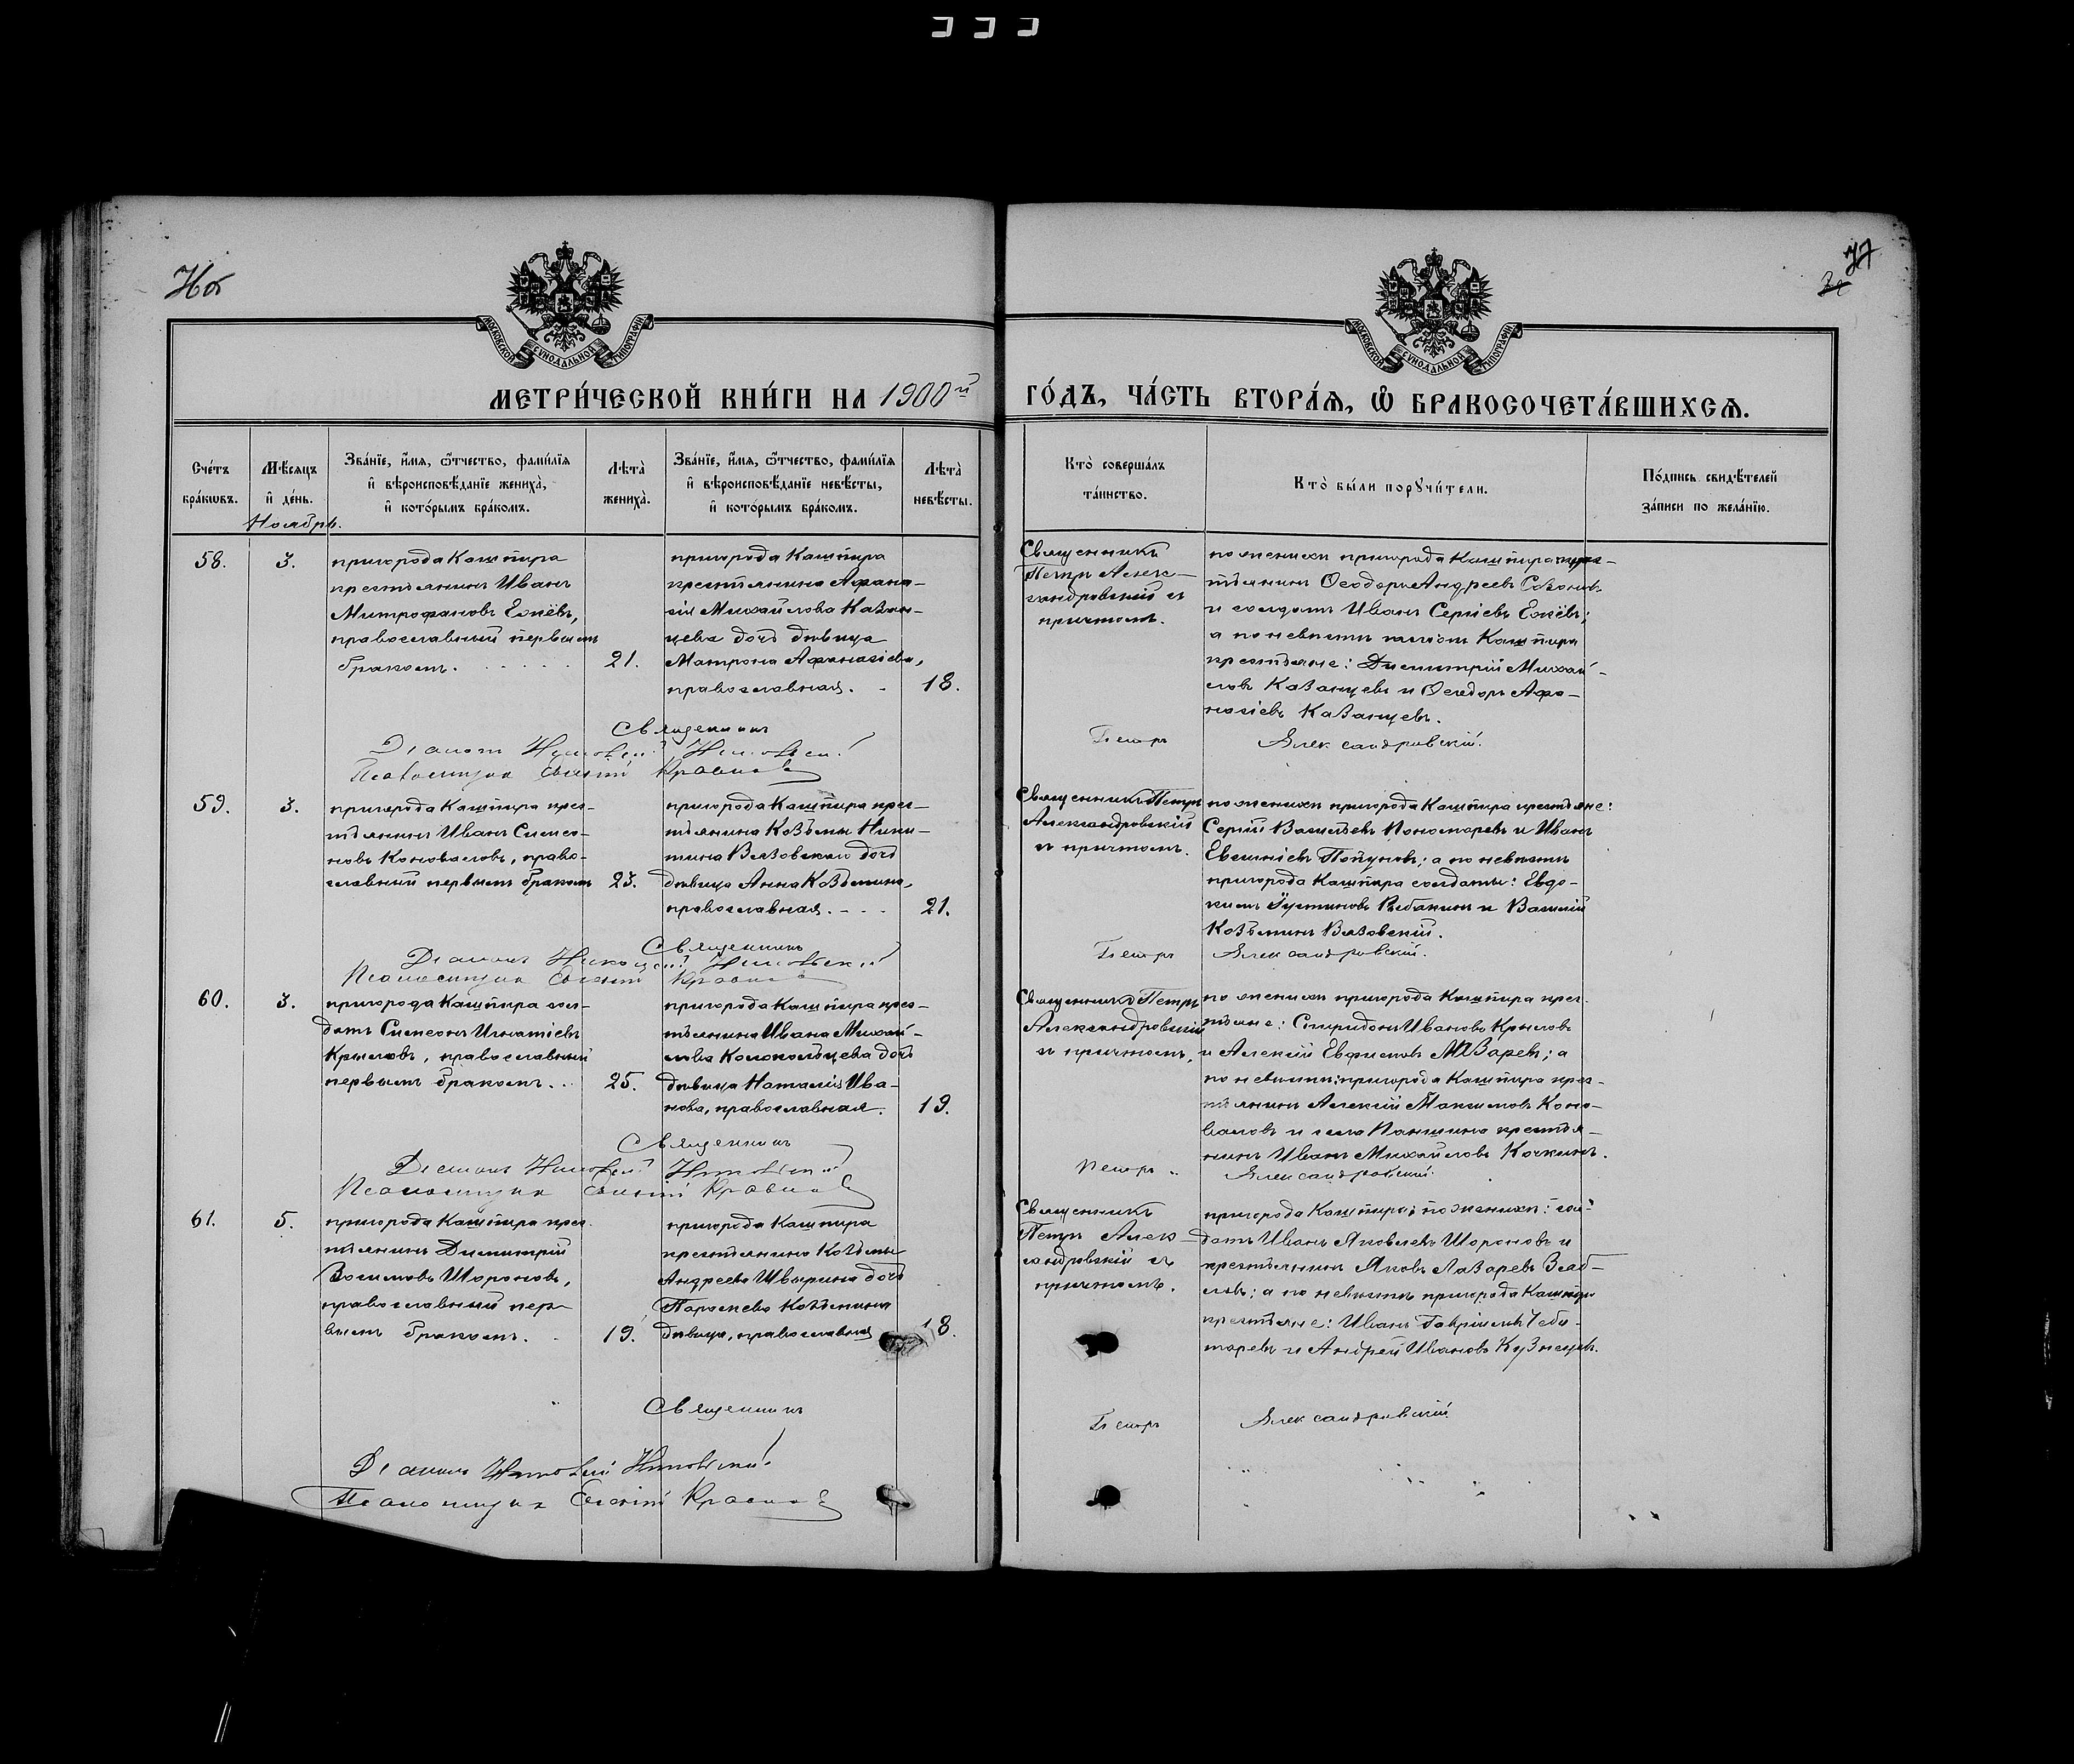 Нб
77
МОСКОВСКОЙ СΥНОДАЛЬНОЙ ТИПОГРАФІИ
МОСКОВСКОЙ СΥНОДАЛЬНОЙ ТИПОГРАФІИ
МЕТРИ́ЧЕСКОЙ КНИ́ГИ НА 1900й ГО́ДЪ, ЧА́СТЬ ВТОРА́Ѧ, Ѽ БРАКОСОЧЕТА́ВШИХСѦ.
Сче́тъ бра́кѡвъ.
Мѣ́сяцъ и҆ де́нь.
Ноябрь.
Зва́нїе, и҆́мѧ, ѻ҆́тчество, фами́лїѧ
и҆ вѣроисповѣ́данїе жениха̀,
и҆ кото́рымъ бра́комъ.
Лѣта̀ жениха̀.
Зва́нїе, и҆́мѧ, ѻ҆́тчество, фами́лїѧ
и҆ вѣроисповѣ́данїе невѣ́сты,
и҆ кото́рымъ бра́комъ.
Лѣта̀ невѣ́сты.
Кто̀ соверша́лъ та́инство.
Кто̀ бы́ли порꙋчи́тели.
По́дпись свидѣ́телей за́писи по жела́нїю.
58.
3.
пригорода Кашпира
крестьянинъ Иванъ
Митрофановъ Ежёвъ,
православный первымъ
бракомъ.
21.
пригорода Кашпира
крестьянина Афана-
сія Михайлова Казан-
цева дочь дѣвица
Матрона Афанасіева,
православная.
18.
Священникъ
Петръ Алек-
сандровскій съ
причтомъ.
по женихѣ пригорода Кашпира крес-
тьянинъ Ѳеодоръ Андреевъ Сазоновъ
и солдатъ Иванъ Сергіевъ Ежёвъ;
а по невѣстѣ
крестьяне: Димитрій Михай-
ловъ Казанцевъ и Ѳеодоръ Афа-
насіевъ Казанцевъ.
Священникъ Петръ Александровскій.
Діаконъ
Псаломщикъ
59.
3.
пригорода Кашпира крес-
тьянинъ Иванъ Симео-
новъ Коноваловъ, право-
славный первымъ бракомъ
23.
пригорода Кашпира крес-
тьянина Козьмы Ники-
тина Вязовскаго дочь
дѣвица Анна Козьмина,
православная.
21.
Священникъ Петръ
Александровскій
съ причтомъ.
по женихѣ пригорода Кашпира крестьяне:
Сергій Васильевъ Пономаревъ и Иванъ
а по невѣстѣ
пригорода Кашпира солдаты: Евдо-
кимъ Устиновъ и Василій
Козьминъ Вязовскій.
Священникъ Петръ Александровскій.
Діаконъ
Псаломщикъ
60.
3.
пригорода Кашпира сол-
датъ Симеонъ Игнатіевъ
Крыловъ, православный
первымъ бракомъ.
25.
пригорода Кашпира крес-
тьянина Ивана Михай-
лова Колокольцева дочь
дѣвица Наталія Ива-
нова, православная.
19.
Священникъ Петръ
Александровскій
съ причтомъ.
по женихѣ пригорода Кашпира крес-
тьяне: Спиридонъ Ивановъ Крыловъ
и Алексій Евфимовъ а
по невѣстѣ: пригорода Кашпира крес-
тьянинъ Алексій Максимовъ Коно-
валовъ и села Паншина крестья-
нинъ Иванъ Михайловъ Кочкинъ.
Священникъ Петръ Александровскій.
Діаконъ
Псаломщикъ
61.
5.
пригорода Кашпира крес-
тьянинъ Димитрій
Шароновъ,
православный пер-
вымъ бракомъ.
19.
пригорода Кашпира
крестьянина Козьмы
Андреева Швырина дочь
Параскева Козьмина
дѣвица, православная
18.
Священникъ
Петръ Алек-
сандровскій съ
причтомъ.
пригорода Кашпира: по женихѣ: сол-
датъ Иванъ Яковлевъ Шароновъ и
крестьянинъ Яковъ Лазаревъ
а по невѣстѣ пригорода Кашпира
крестьяне: Иванъ Гавріиловъ Чебо-
таревъ и Андрей Ивановъ Кузнецовъ.
Священникъ Петръ Александровскій
Діаконъ
Псаломщикъ